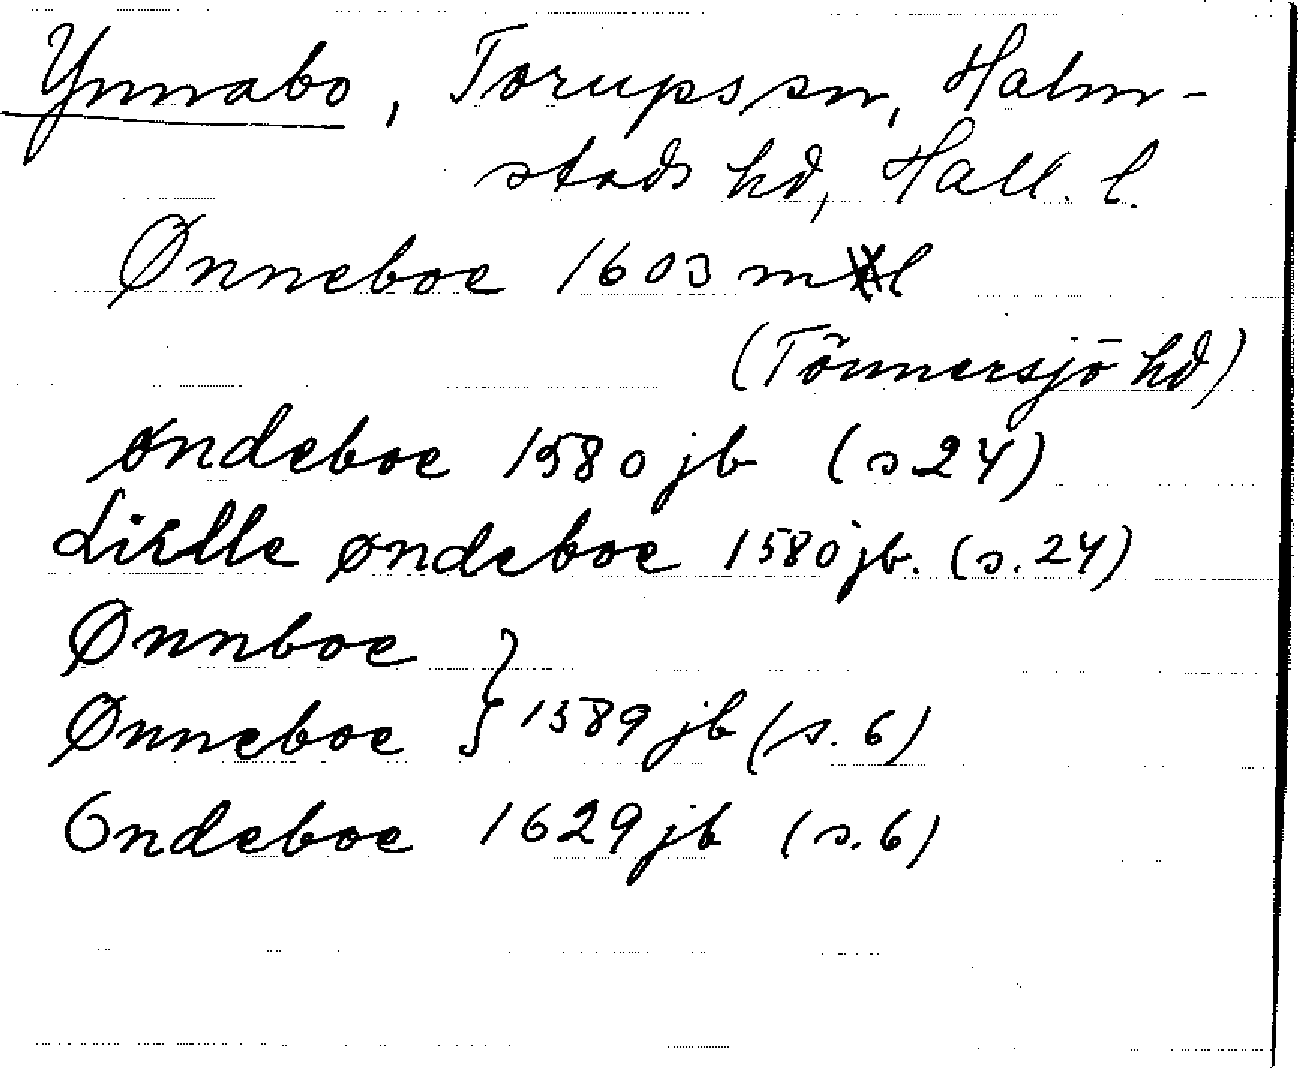 Ynnabo, Torups sn, Halm-
stads hd, Hall. l.
Ønneboe 1603 ml
(Tönnersjö hd)
øndeboe 1580 jb (s 24)
Lidlle øndeboe 1580 jb. (s. 24)
Ønnboe
Ønneboe } 1589 jb (s. 6)
Ondeboe 1629 jb (s. 6)